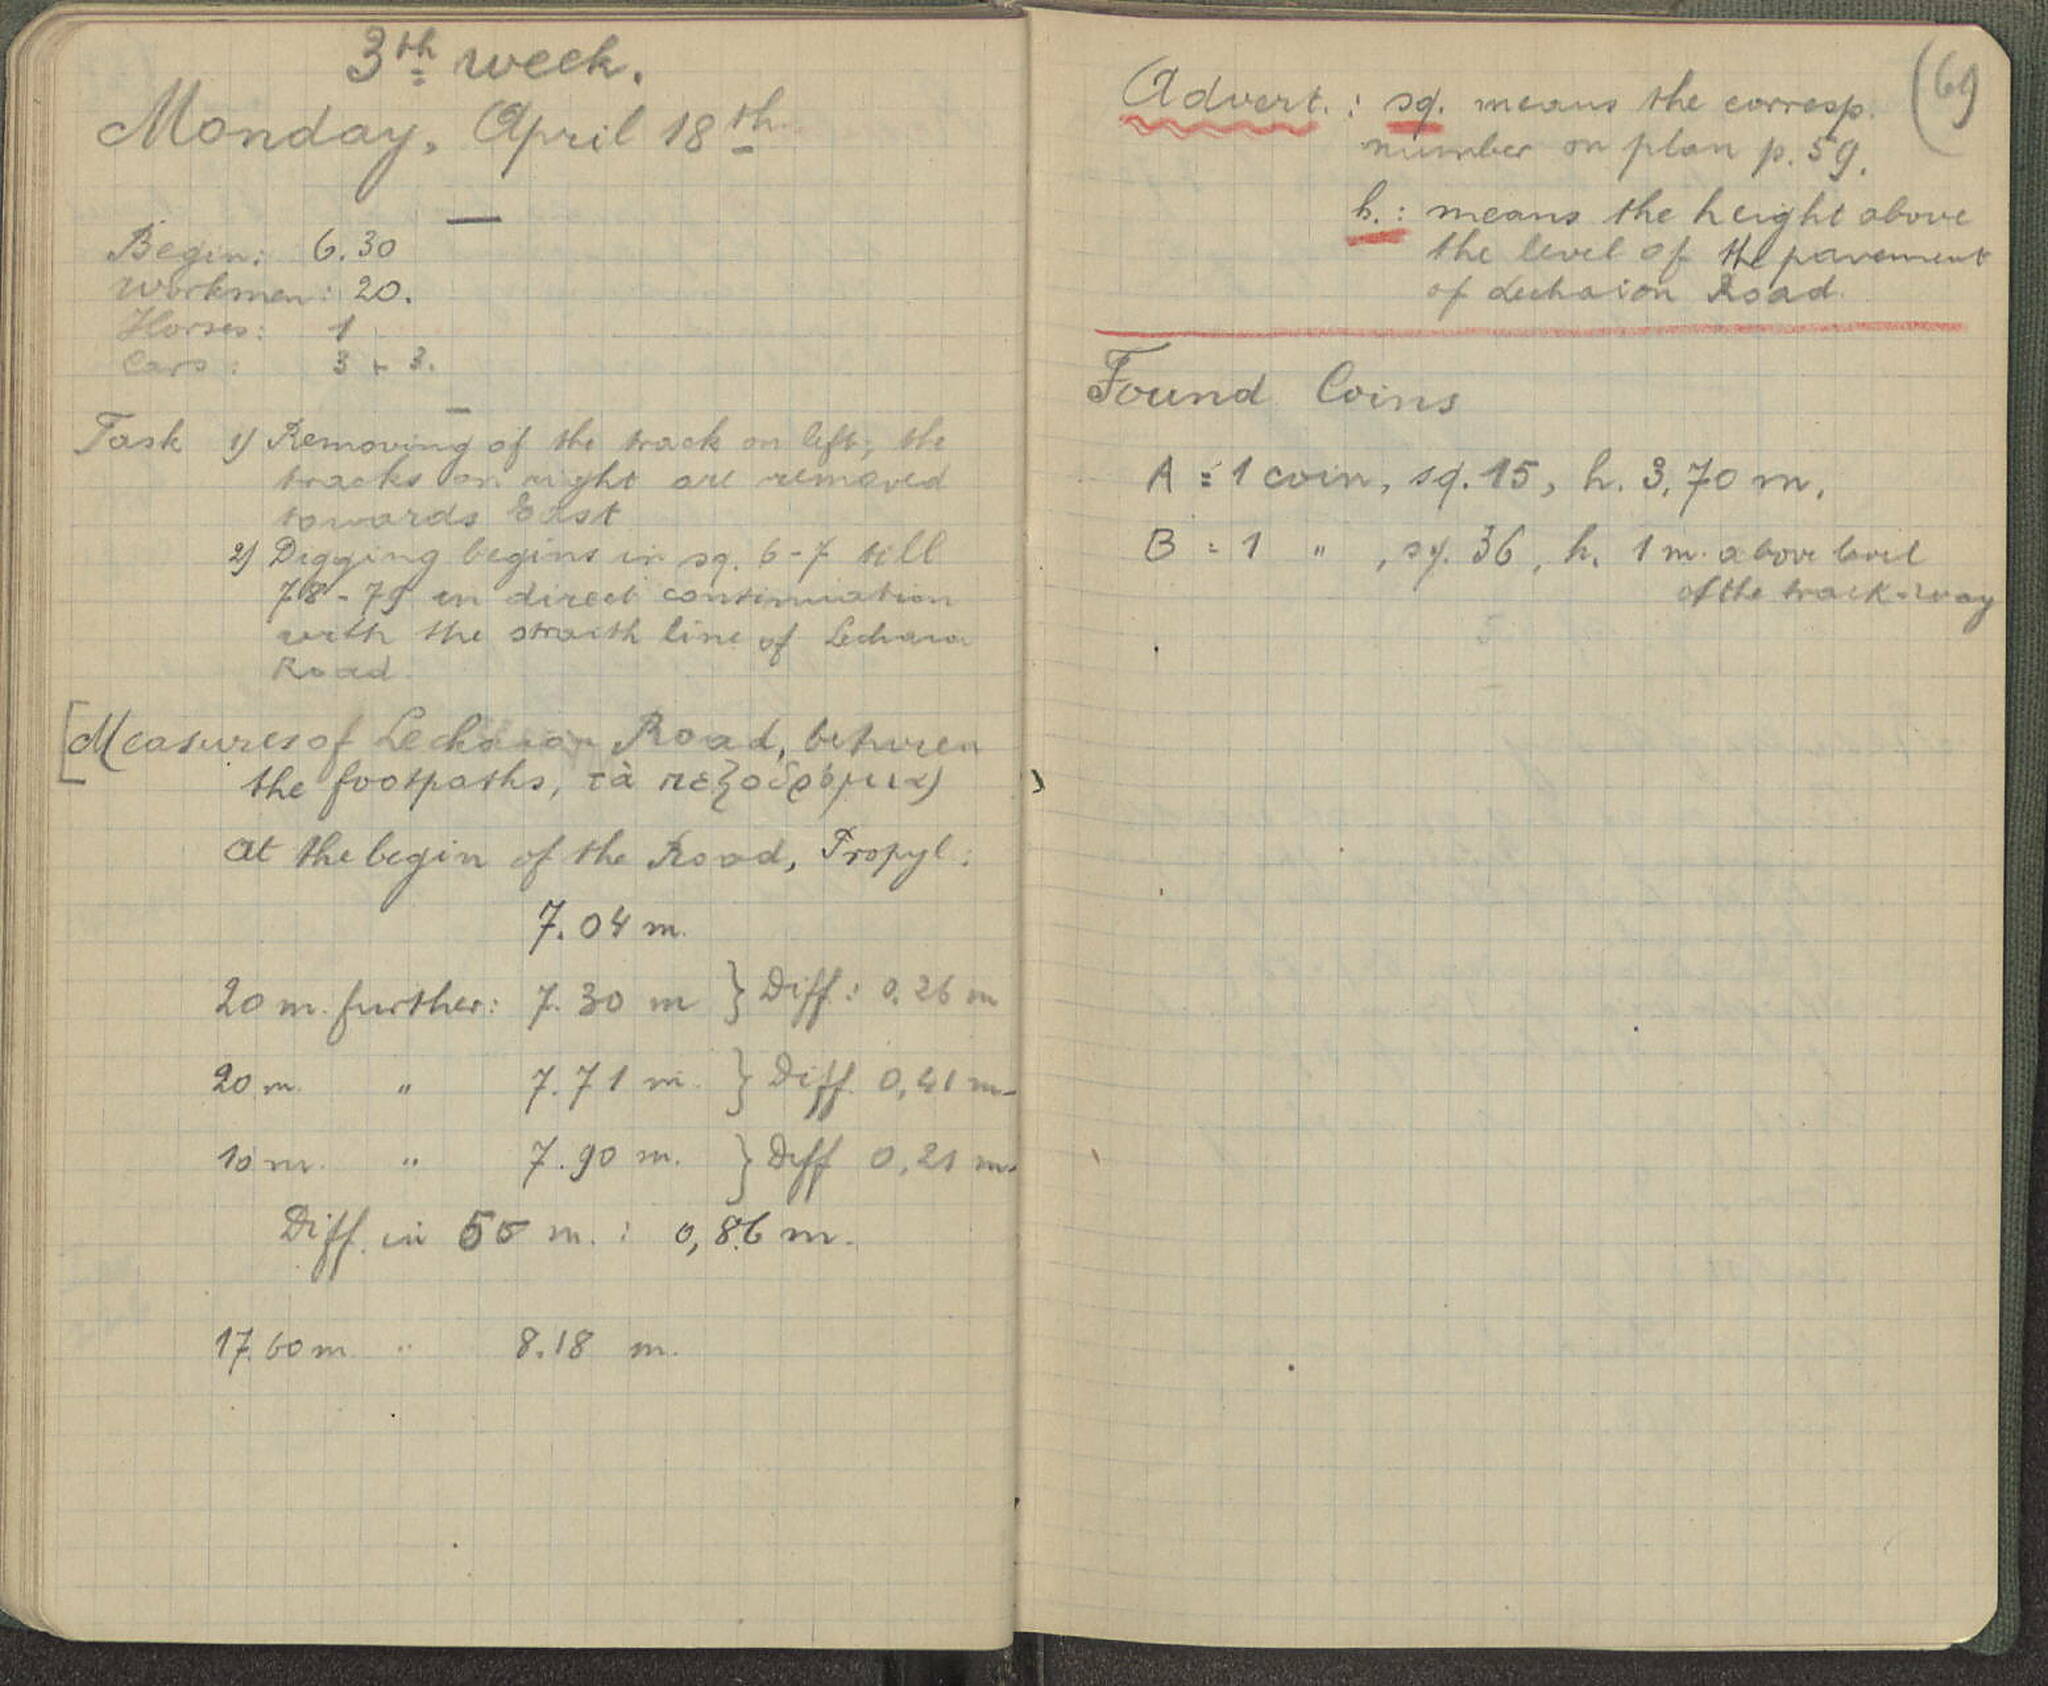 3th week.
Monday, April 18th.
Begin: 6.30
Workmen: 20.
Horses: 1
Cars: 3 + 3.
Task 1) Removing of the track on left, the
tracks on right are removed
towards East
2) Digging begins in sq. 6-7 till
78-79 in direct continuation
with the straith line of Lechaion
Road.
[Measures of Lechaion Road, between
the footpaths, τὰ πεζοδρόμια)
At the begin of the Road, Propyl:
7.04 m.
20 m. further: 7.30 m } Diff: 0.26 m
20 m. " 7.71 m. } Diff. 0,41 m.
10 m. " 7.90 m. } Diff 0,21 m.
Diff. in 50 m.: 0,86 m.
17.60 m " 8.18 m.
(69
Advert.: sq. means the corresp.
number on plan p. 59.
h.: means the height above
the level of the pavement
of Lechaion Road.
Found Coins
A = 1 coin, sq. 15, h. 3,70 m.
B = 1 " , sq. 36, h. 1 m. above level
of the track-way